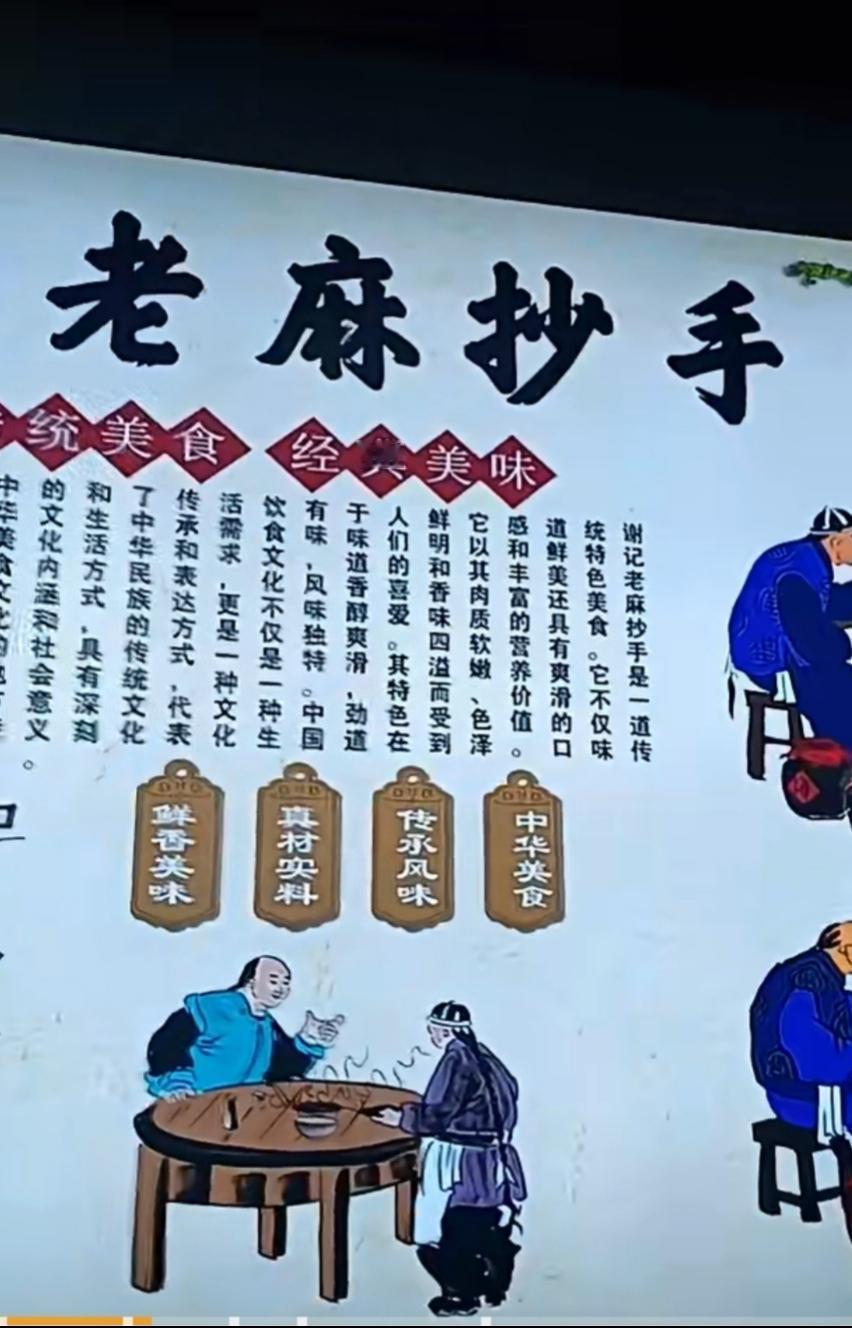 老麻抄手
统美食 经典美味
谢记老麻抄手是一道传
统特色美食。它不仅味
道鲜美还具有爽滑的口
感和丰富的营养价值。
它以其肉质软嫩、色泽
鲜明和香味四溢而受到
人们的喜爱。其特色在
于味道香醇爽滑,劲道
有味,风味独特。中国
饮食文化不仅是一种生
活需求,更是一种文化
传承和表达方式,代表
了中华民族的传统文化
和生活方式,具有深刻
的文化内涵和社会意义。
中华美食文化的
中华美食
传承风味
真材实料
鲜香美味